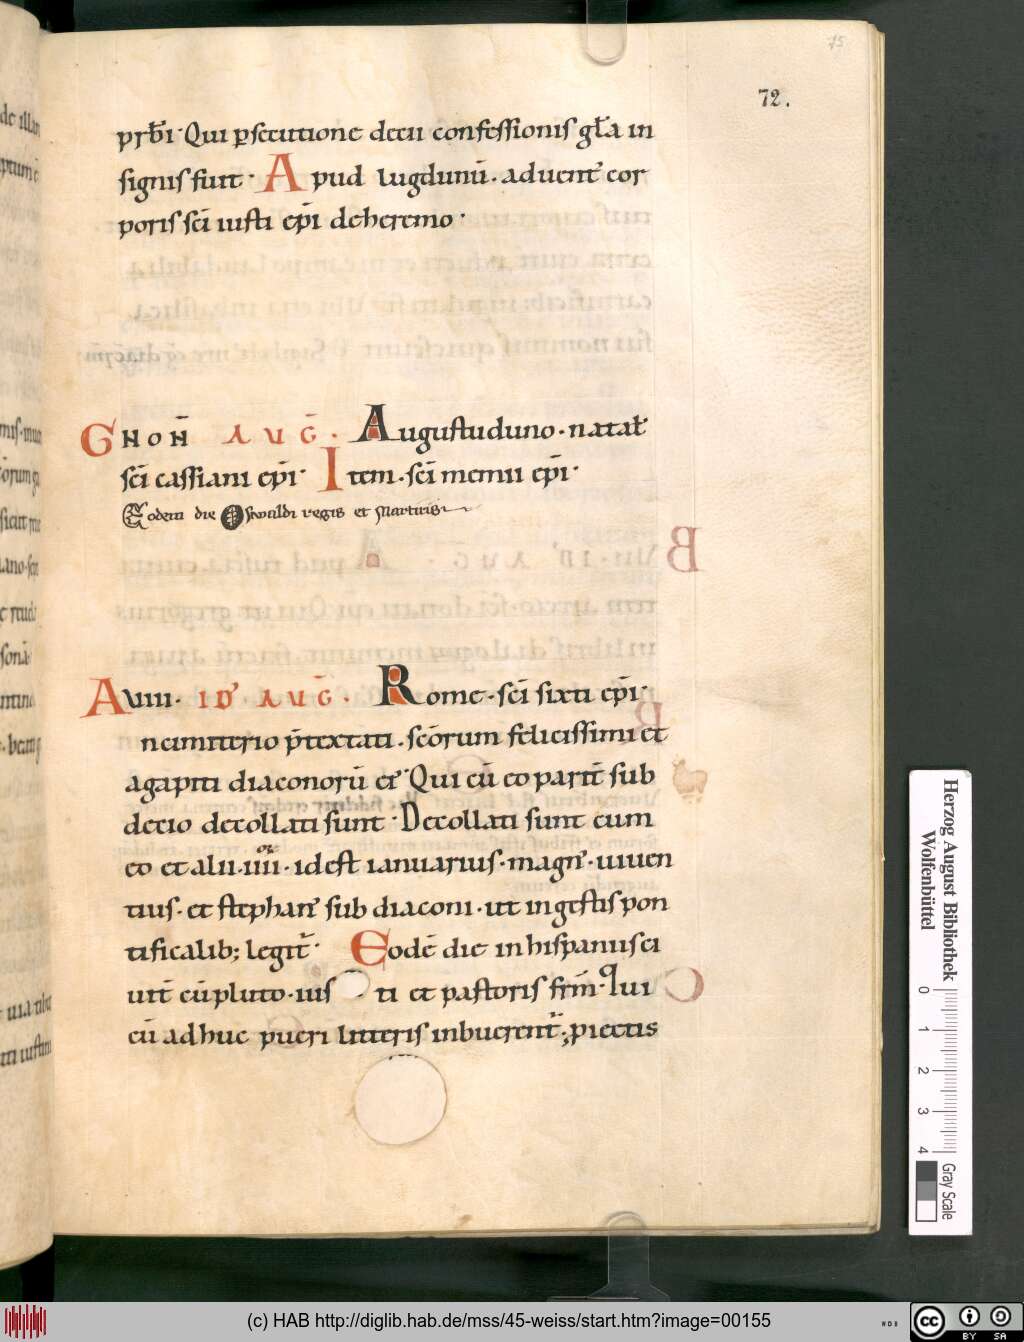 75
72.
prb̄i· Qui ꝑsecutione decii confessionis gl̄a in
signis fuit· Apud lugdunū· aduent̄ cor
poris sc̄i iusti ep̄i deheremo·
G NON̄ AUḠ. Augustuduno· natal̄
sc̄i cassiani ep̄i· Item· sc̄i memii ep̄i·
Eodem die Oswaldi regis et Martiris
A VIII· ID' AUḠ. Rome· sc̄i sixti ep̄i·
ncimiterio p̄textati· sc̄orum felicissimi et
agapiti diaconorū ei' Qui cū eo parit̄ sub
decio decollati sunt· Decollati sunt cum
eo et alii· iiii· idest ianuarius· magn'· uiuen
tius· et stephan' sub diaconi· ut in gestis pon
tificalib; legit̄· Eodē die in hispaniis ci
uit̄ cūpluto· ius ti et pastoris frm̄· Qui
cū adhuc pueri litteris inbuerent̄; piectis
Herzog August Bibliothek
Wolfenbüttel
0 1 2 3 4
Gray Scale
(c) HAB http://diglib.hab.de/mss/45-weiss/start.htm?image=00155
cc BY SA